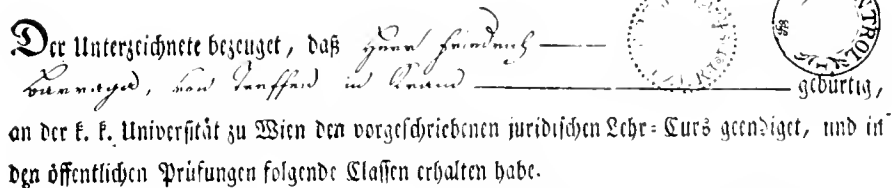 Der Unterzeichnete bezeuget, daß Herr Friedrich
Barraga, von Treffen in Krain gebürtig,
an der k. k. Universität zu Wien den vorgeschriebenen juridischen Lehr=Curs geendiget, und in
den öffentlichen Prüfungen folgende Classen erhalten habe.